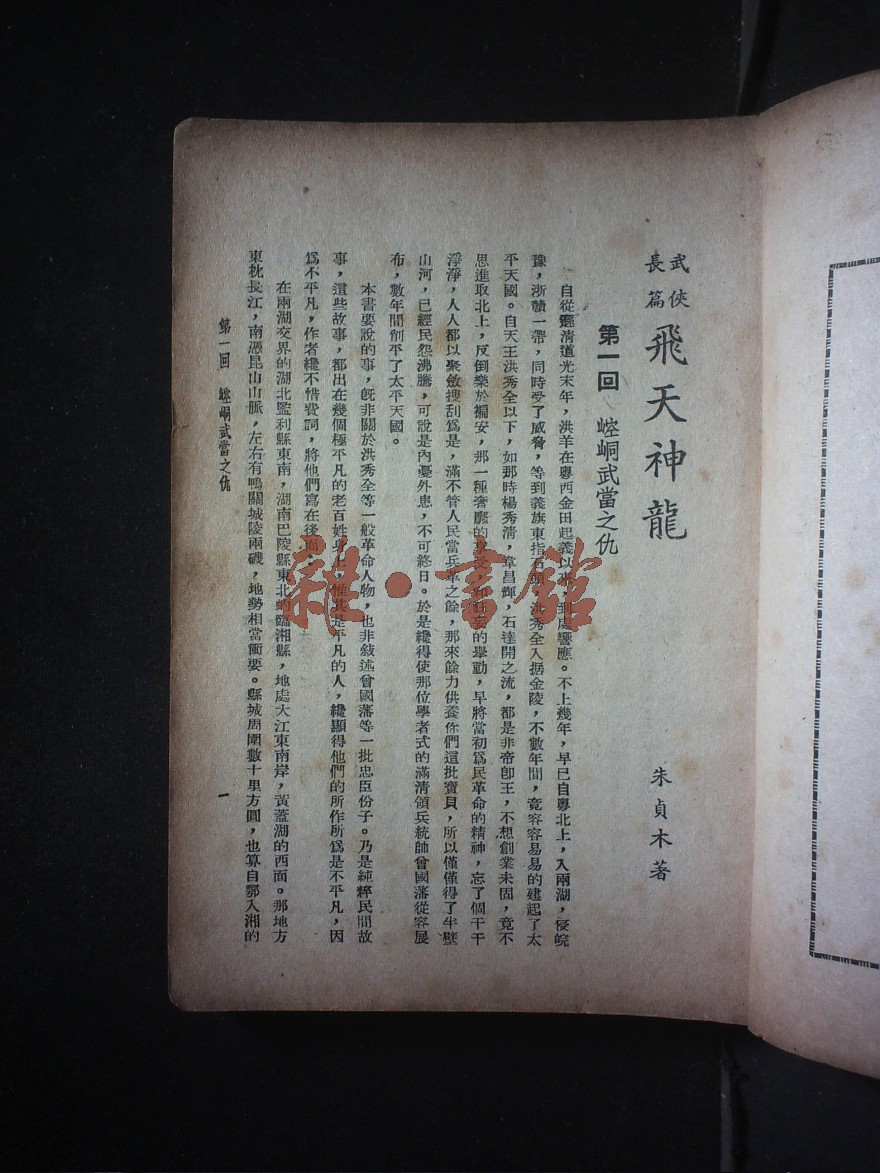 武俠
長篇
飛天神龍
朱貞木著
第一回 崆峒武當之仇
自從遜清道光末年，洪羊在粵西金田起義以來，到處響應。不上幾年，早已自粵北上，入兩湖，侵皖
豫，浙贛一帶，同時受了威脅，等到義旗東指石頭，洪秀全入据金陵，不數年間，竟容容易易的建起了太
平天國。自天王洪秀全以下，如那時楊秀清，韋昌輝，石達開之流，都是非帝卽王，不想創業未固，竟不
思進取北上，反倒樂於褊安，那一種奢靡的享受，和狂妄的舉動，早將當初爲民革命的精神，忘了個干干
淨淨，人人都以聚斂搜刮爲是，滿不管人民當兵革之餘，那來餘力供養你們這批寶貝，所以僅僅得了半壁
山河，已經民怨沸騰，可說是內憂外患，不可終日。於是纔得使那位學者式的滿清領兵統帥曾國藩從容展
布，數年間創平了太平天國。
本書要說的事，旣非關於洪秀全等一般革命人物，也非敍述曾國藩等一批忠臣份子。乃是純粹民間故
事，這些故事，都出在幾個極平凡的老百姓身上，惟其是平凡的人，纔顯得他們的所作所爲是不平凡，因
爲不平凡，作者纔不惜費詞，將他們寫在後面。
在兩湖交界的湖北監利縣東南，湖南巴陵縣東北的臨湘縣，地處大江東南岸，黃蓋湖的西面。那地方
東枕長江，南憑昆山山脈，左右有鴨關城陵兩磯，地勢相當衝要。縣城周圍數十里方圓，也算自鄂入湘的
第一回 崆峒武當之仇
一
雜·書館